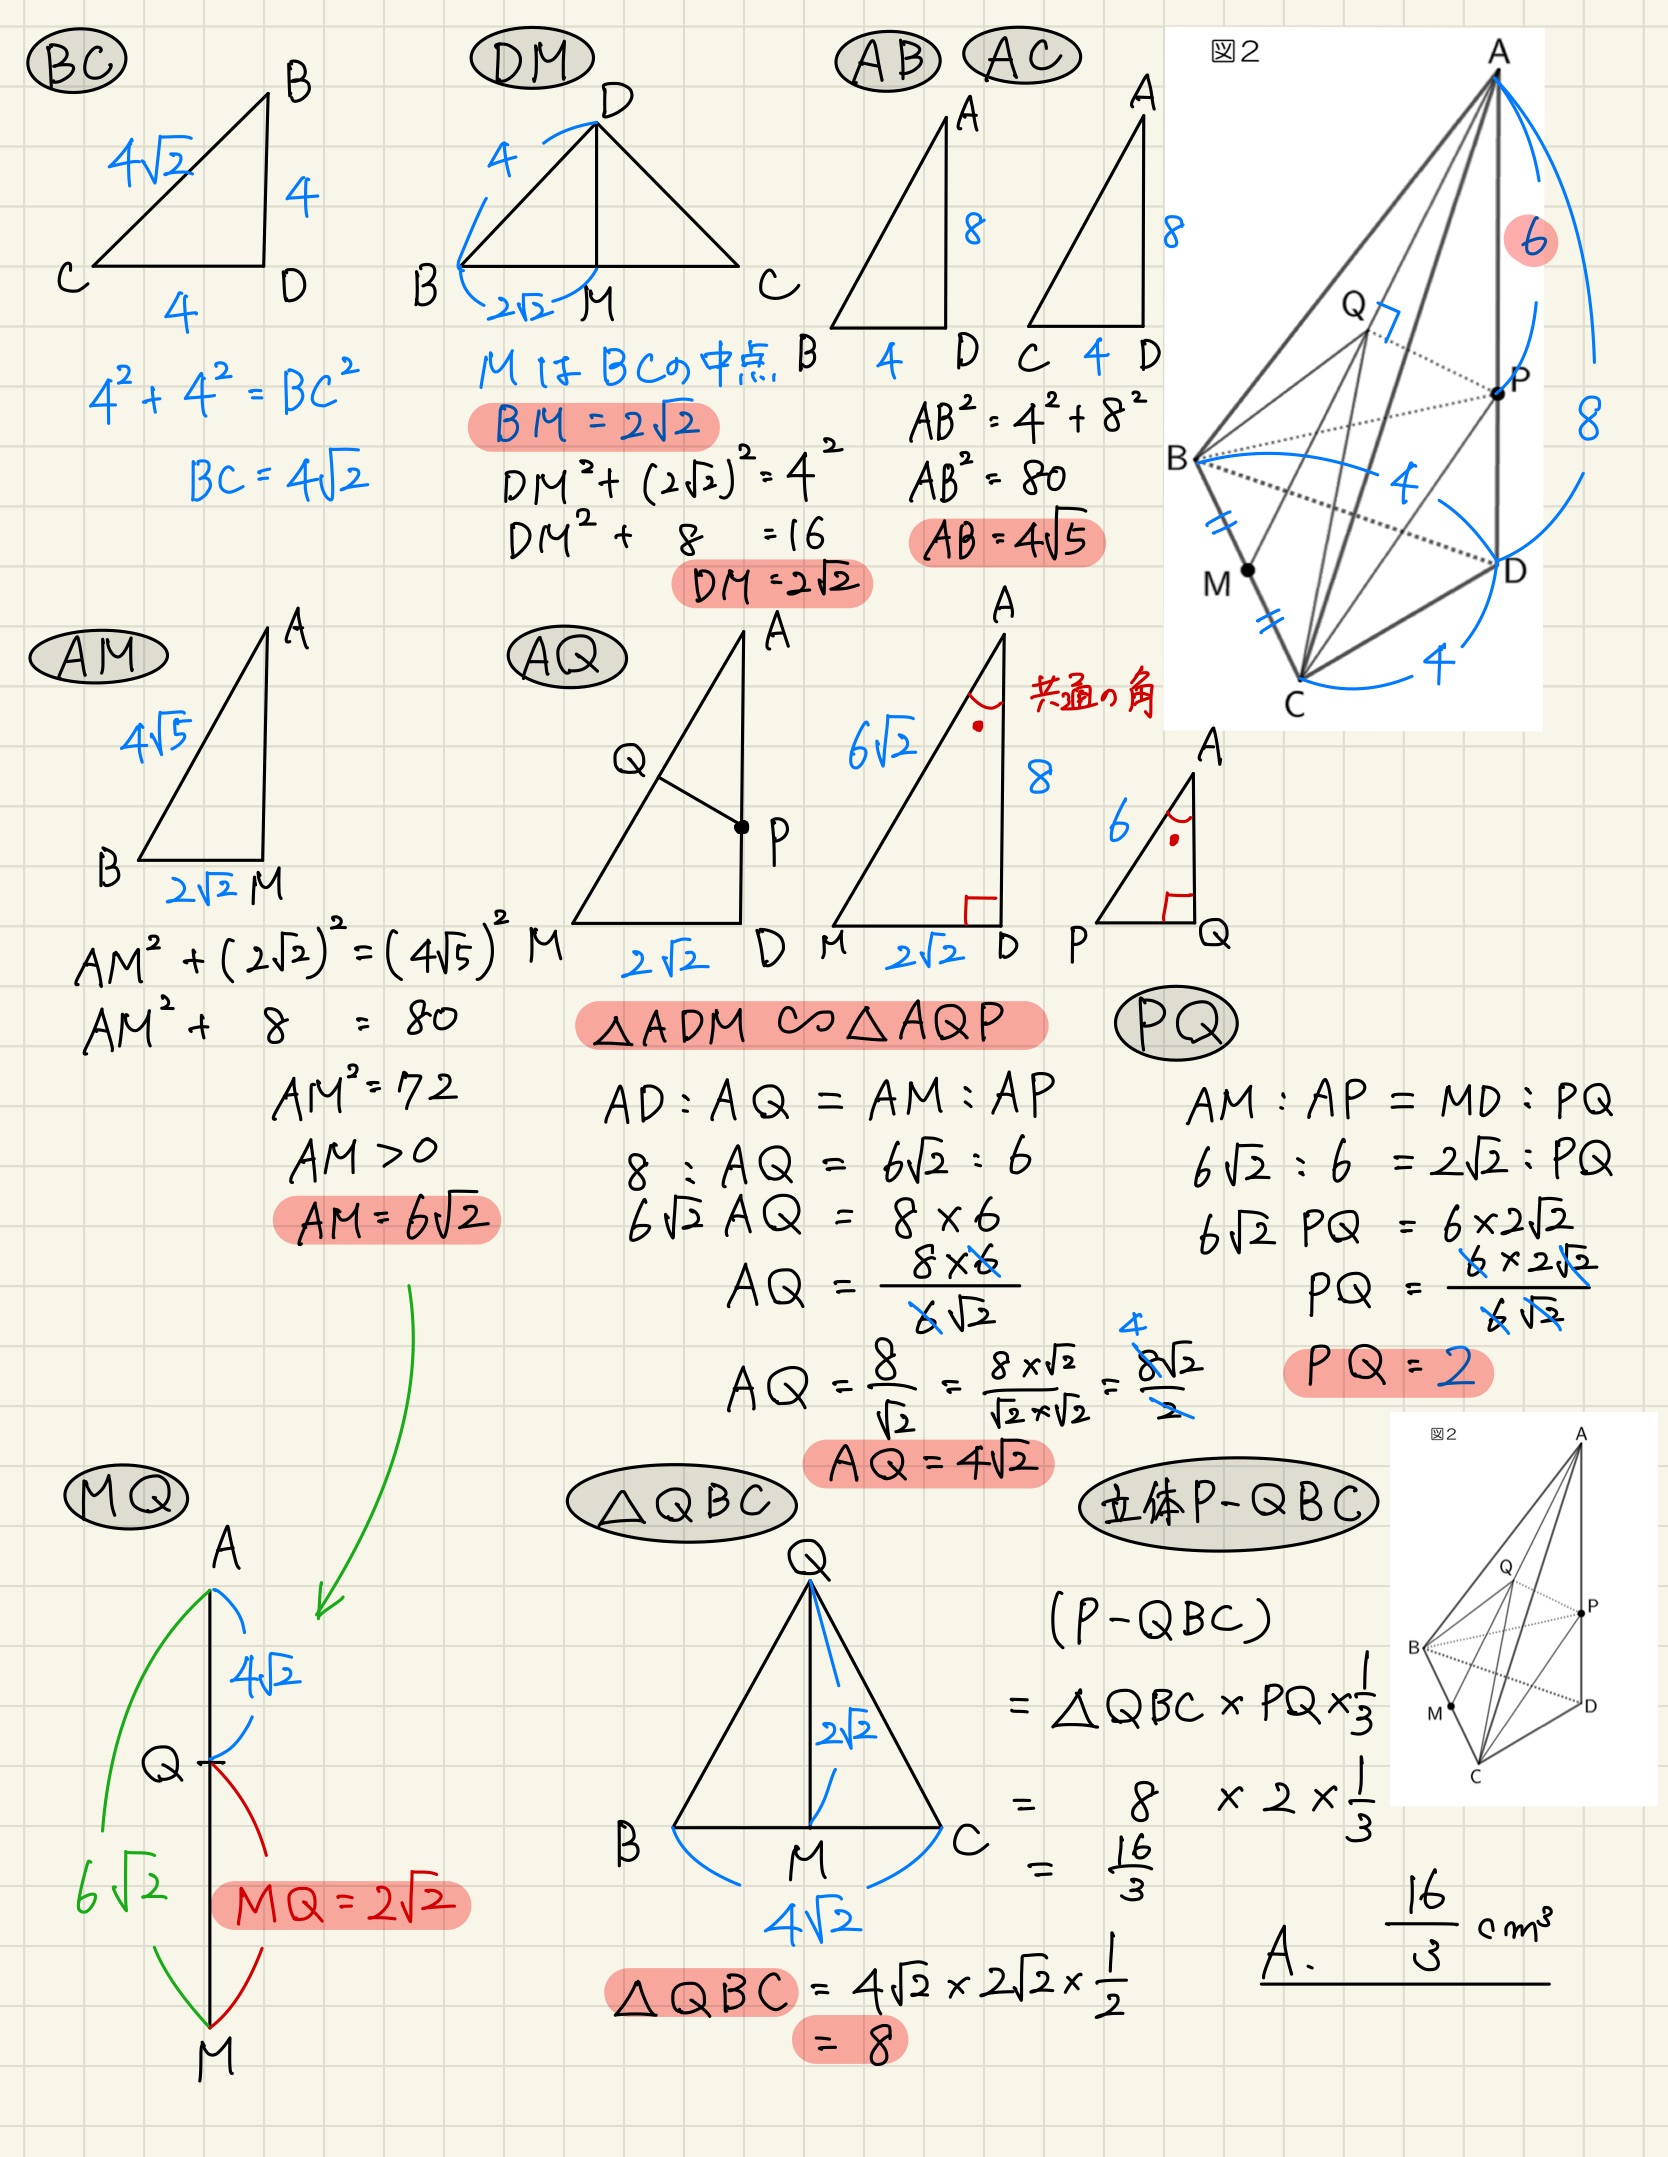 BC
B
4√2
4
C
D
4
4² + 4² = BC²
BC = 4√2
DM
D
4
B
2√2
M
C
MはBCの中点
BM = 2√2
DM² + (2√2)² = 4²
DM² + 8 = 16
DM = 2√2
AB
AC
A
8
B
4
D
A
8
C
4
D
AB² = 4² + 8²
AB² = 80
AB = 4√5
図2
A
6
Q
P
8
B
4
M
D
4
C
AM
A
4√5
B
2√2
M
AM² + (2√2)² = (4√5)²
AM² + 8 = 80
AM² = 72
AM > 0
AM = 6√2
AQ
A
Q
P
M
2√2
D
A
共通の角
6√2
8
M
2√2
D
A
6
P
Q
△ADM ∽ △AQP
AD : AQ = AM : AP
8 : AQ = 6√2 : 6
6√2 AQ = 8 × 6
AQ = 8×6 / 6√2
AQ = 8/√2 = 8×√2 / √2×√2 = 8√2 / 2
4
AQ = 4√2
PQ
AM : AP = MD : PQ
6√2 : 6 = 2√2 : PQ
6√2 PQ = 6×2√2
PQ = 6×2√2 / 6√2
PQ = 2
MQ
A
4√2
Q
6√2
MQ = 2√2
M
△QBC
Q
2√2
B
M
C
4√2
△QBC = 4√2 × 2√2 × 1/2
= 8
立体P-QBC
(P-QBC)
= △QBC × PQ × 1/3
= 8 × 2 × 1/3
= 16/3
図2
A
Q
P
B
M
D
C
A. 16/3 cm³